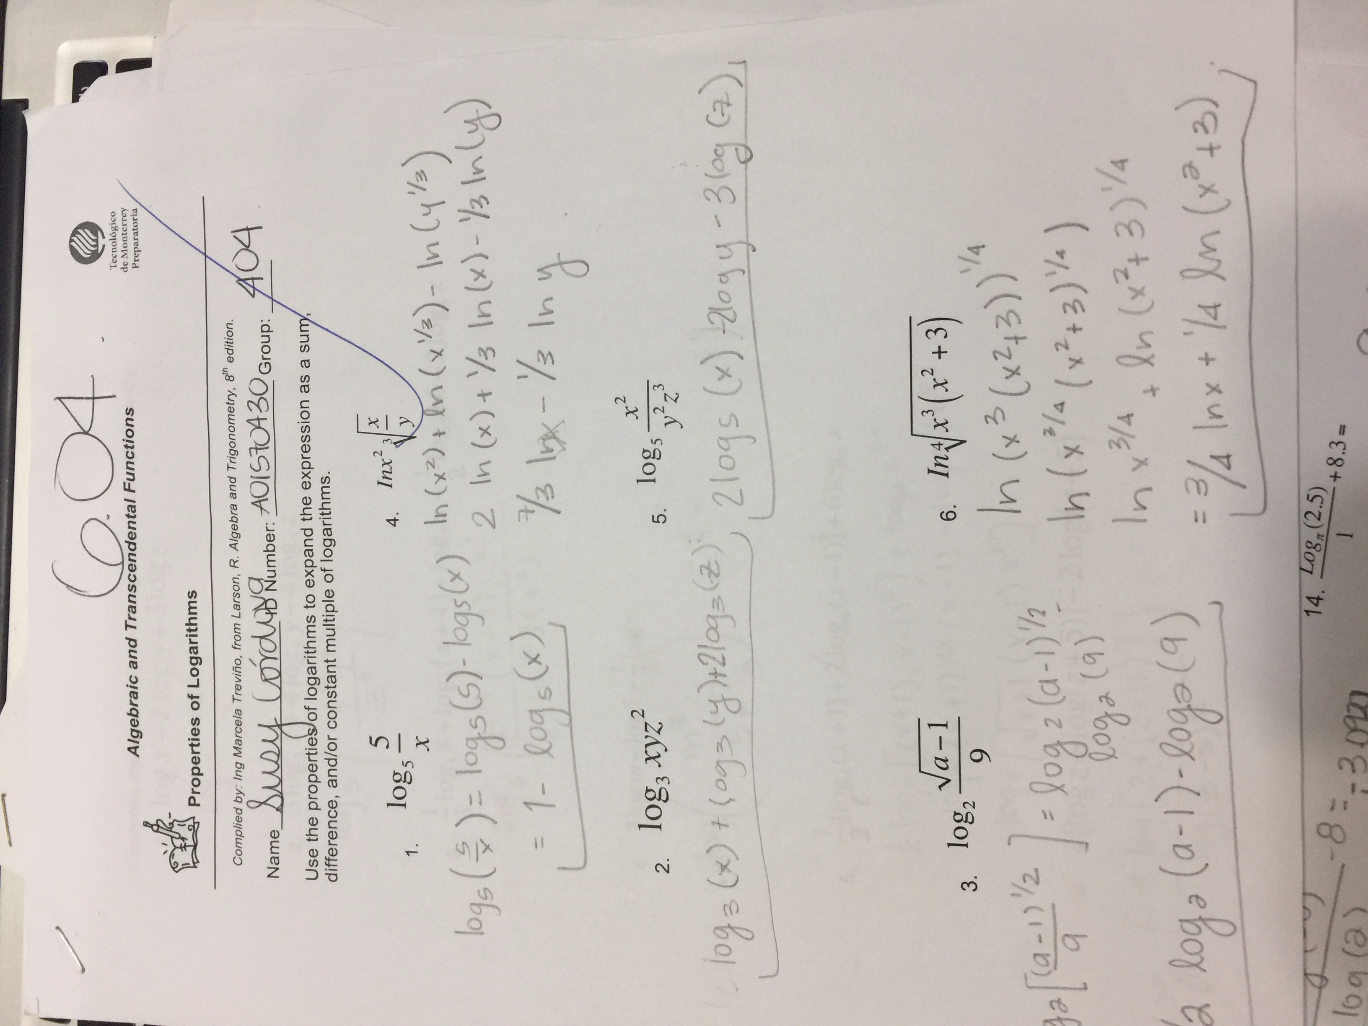 6.04
Tecnológico
de Monterrey
Preparatoria
Algebraic and Transcendental Functions
Properties of Logarithms
Complied by: Ing Marcela Treviño, from Larson, R. Algebra and Trigonometry, 8th edition.
Name Susy Córdova ID Number: A01570430 Group: 404
Use the properties of logarithms to expand the expression as a sum,
difference, and/or constant multiple of logarithms.
1. log₅ 5/x
log₅(5/x) = log₅(5) - log₅(x)
= 1 - log₅(x)
4. lnx² ∛(x/y)
ln(x²) + ln(x^1/3) - ln(y^1/3)
2 ln(x) + 1/3 ln(x) - 1/3 ln(y)
7/3 lnx - 1/3 ln y
2. log₃ xyz²
log₃(x) + log₃(y) + 2log₃(z)
5. log₅ x²/(y²z³)
2log₅(x) - 2log y - 3log(z)
3. log₂ √(a-1)/9
[(a-1)^1/2 / 9] = log₂(a-1)^1/2
log₂(9)
2 log₂(a-1) - log₂(9)
6. ln ∜(x³(x²+3))
ln(x³(x²+3))^1/4
ln(x^3/4 (x²+3)^1/4)
ln x^3/4 + ln(x²+3)^1/4
= 3/4 lnx + 1/4 ln(x²+3)
log(2) -8 =
14. Logπ(2.5)/1 + 8.3 =